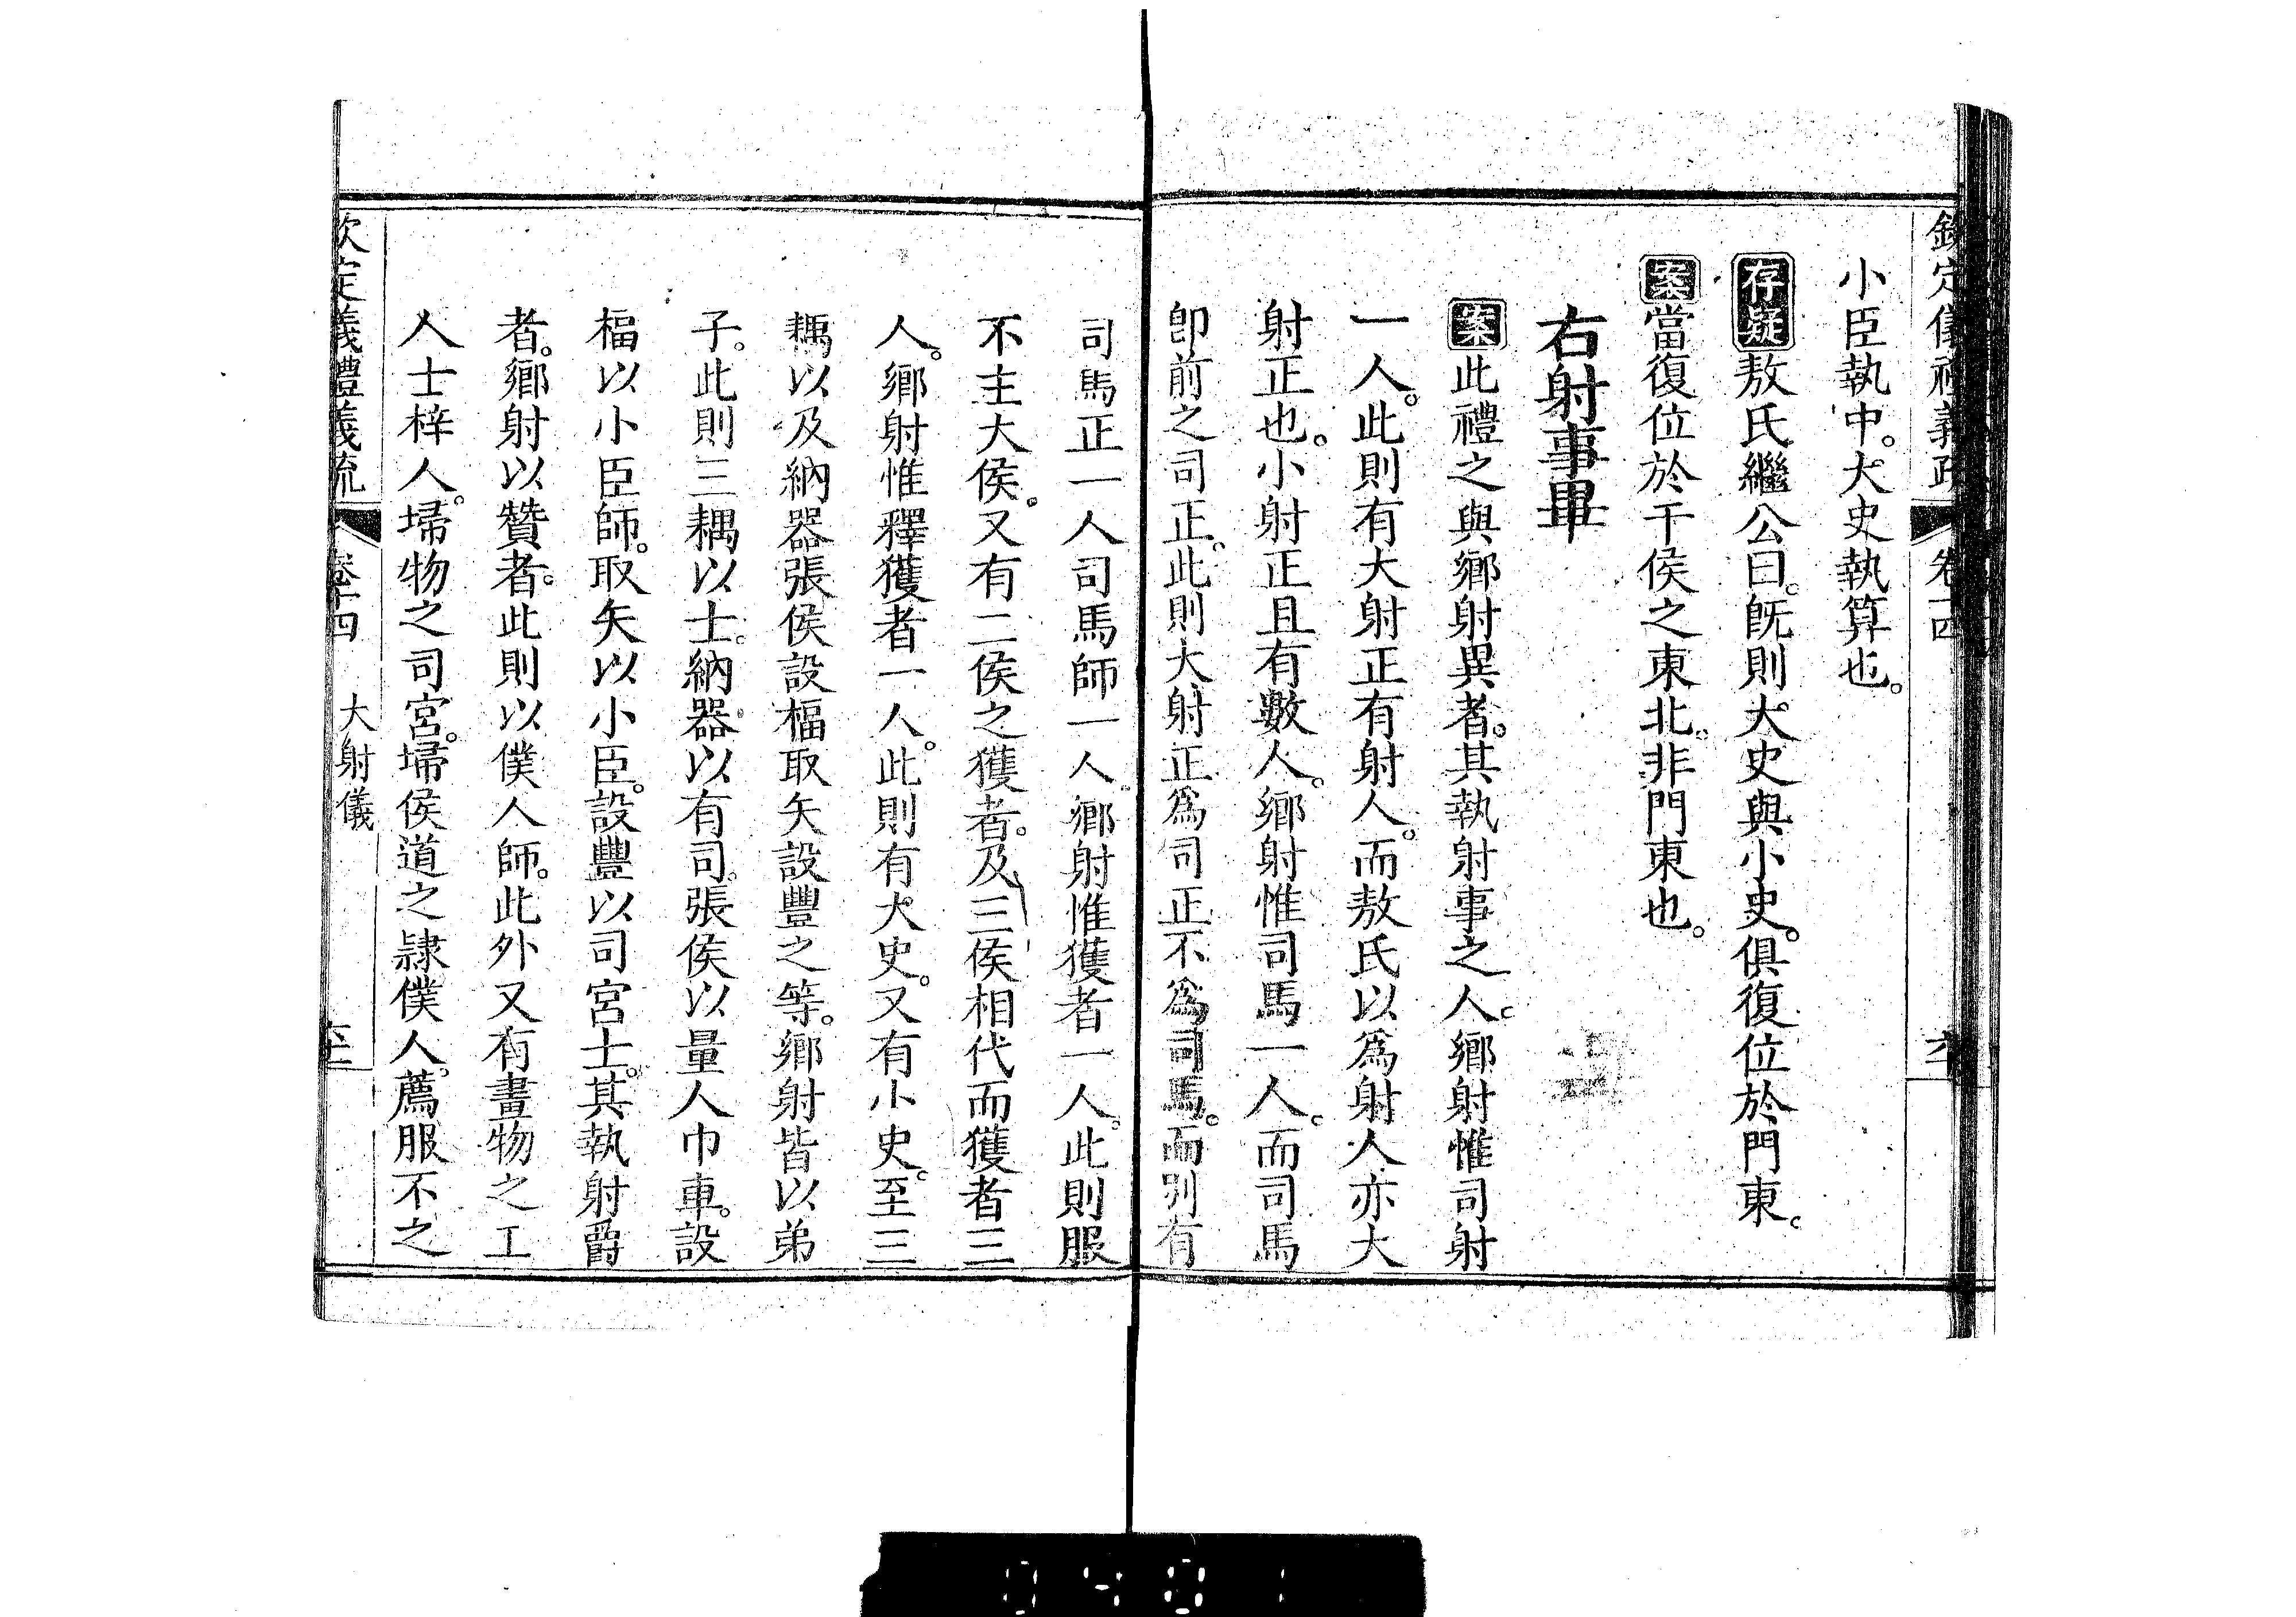 欽定儀禮義疏 卷十四
小臣執中。大史執算也。
存疑敖氏繼公曰。旣則大史與小史。俱復位於門東。
案當復位於干侯之東北。非門東也。
右射事畢
案此禮之與鄉射異者。其執射事之人。鄉射惟司射
一人。此則有大射正有射人。而敖氏以爲射人亦大
射正也。小射正且有數人。鄉射惟司馬一人。而司馬
卽前之司正。此則大射正爲司正不爲司馬。而別有
司馬正一人司馬師一人。鄉射惟獲者一人。此則服
不主大侯。又有二侯之獲者。及三侯相代而獲者三
人。鄉射惟釋獲者一人。此則有大史。又有小史。至三
耦以及納器張侯設楅取矢設豐之等。鄉射皆以弟
子。此則三耦以士。納器以有司。張侯以量人巾車。設
楅以小臣師。取矢以小臣。設豐以司宮士。其執射爵
者。鄉射以贊者。此則以僕人師。此外又有畫物之工
人士梓人。埽物之司宮。埽侯道之隸僕人。薦服不之
欽定義禮義疏 卷十四 大射儀